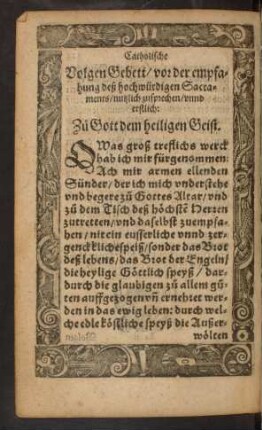 Catholische
Volgen Gebett / vor der empfa-
hung deß hochwürdigen Sacra-
ments / nutzlich zusprechen / vnnd
erstlich:
Zů Gott dem heiligen Geist.
O Was groß treflichs werck
hab ich mir fürgenommen:
Ach mir armen ellenden
Sünder / der ich mich vnderstehe
vnd begere zů Gottes Altar / vnd
zů dem Tisch deß höchstẽ Herren
zutretten / vnd daselbst zuempfa-
hen / nit ein eusserliche vnnd zer-
gencklichespeiß / sonder das Brot
deß lebens / das Brot der Engeln /
die heylige Göttlich speyß / dar-
durch die glaubigen zů allem gů-
ten auffgezogen vñ ernehret wer-
den in das ewig leben: durch wel-
che edle köstliche speyß die Außer-
wölten